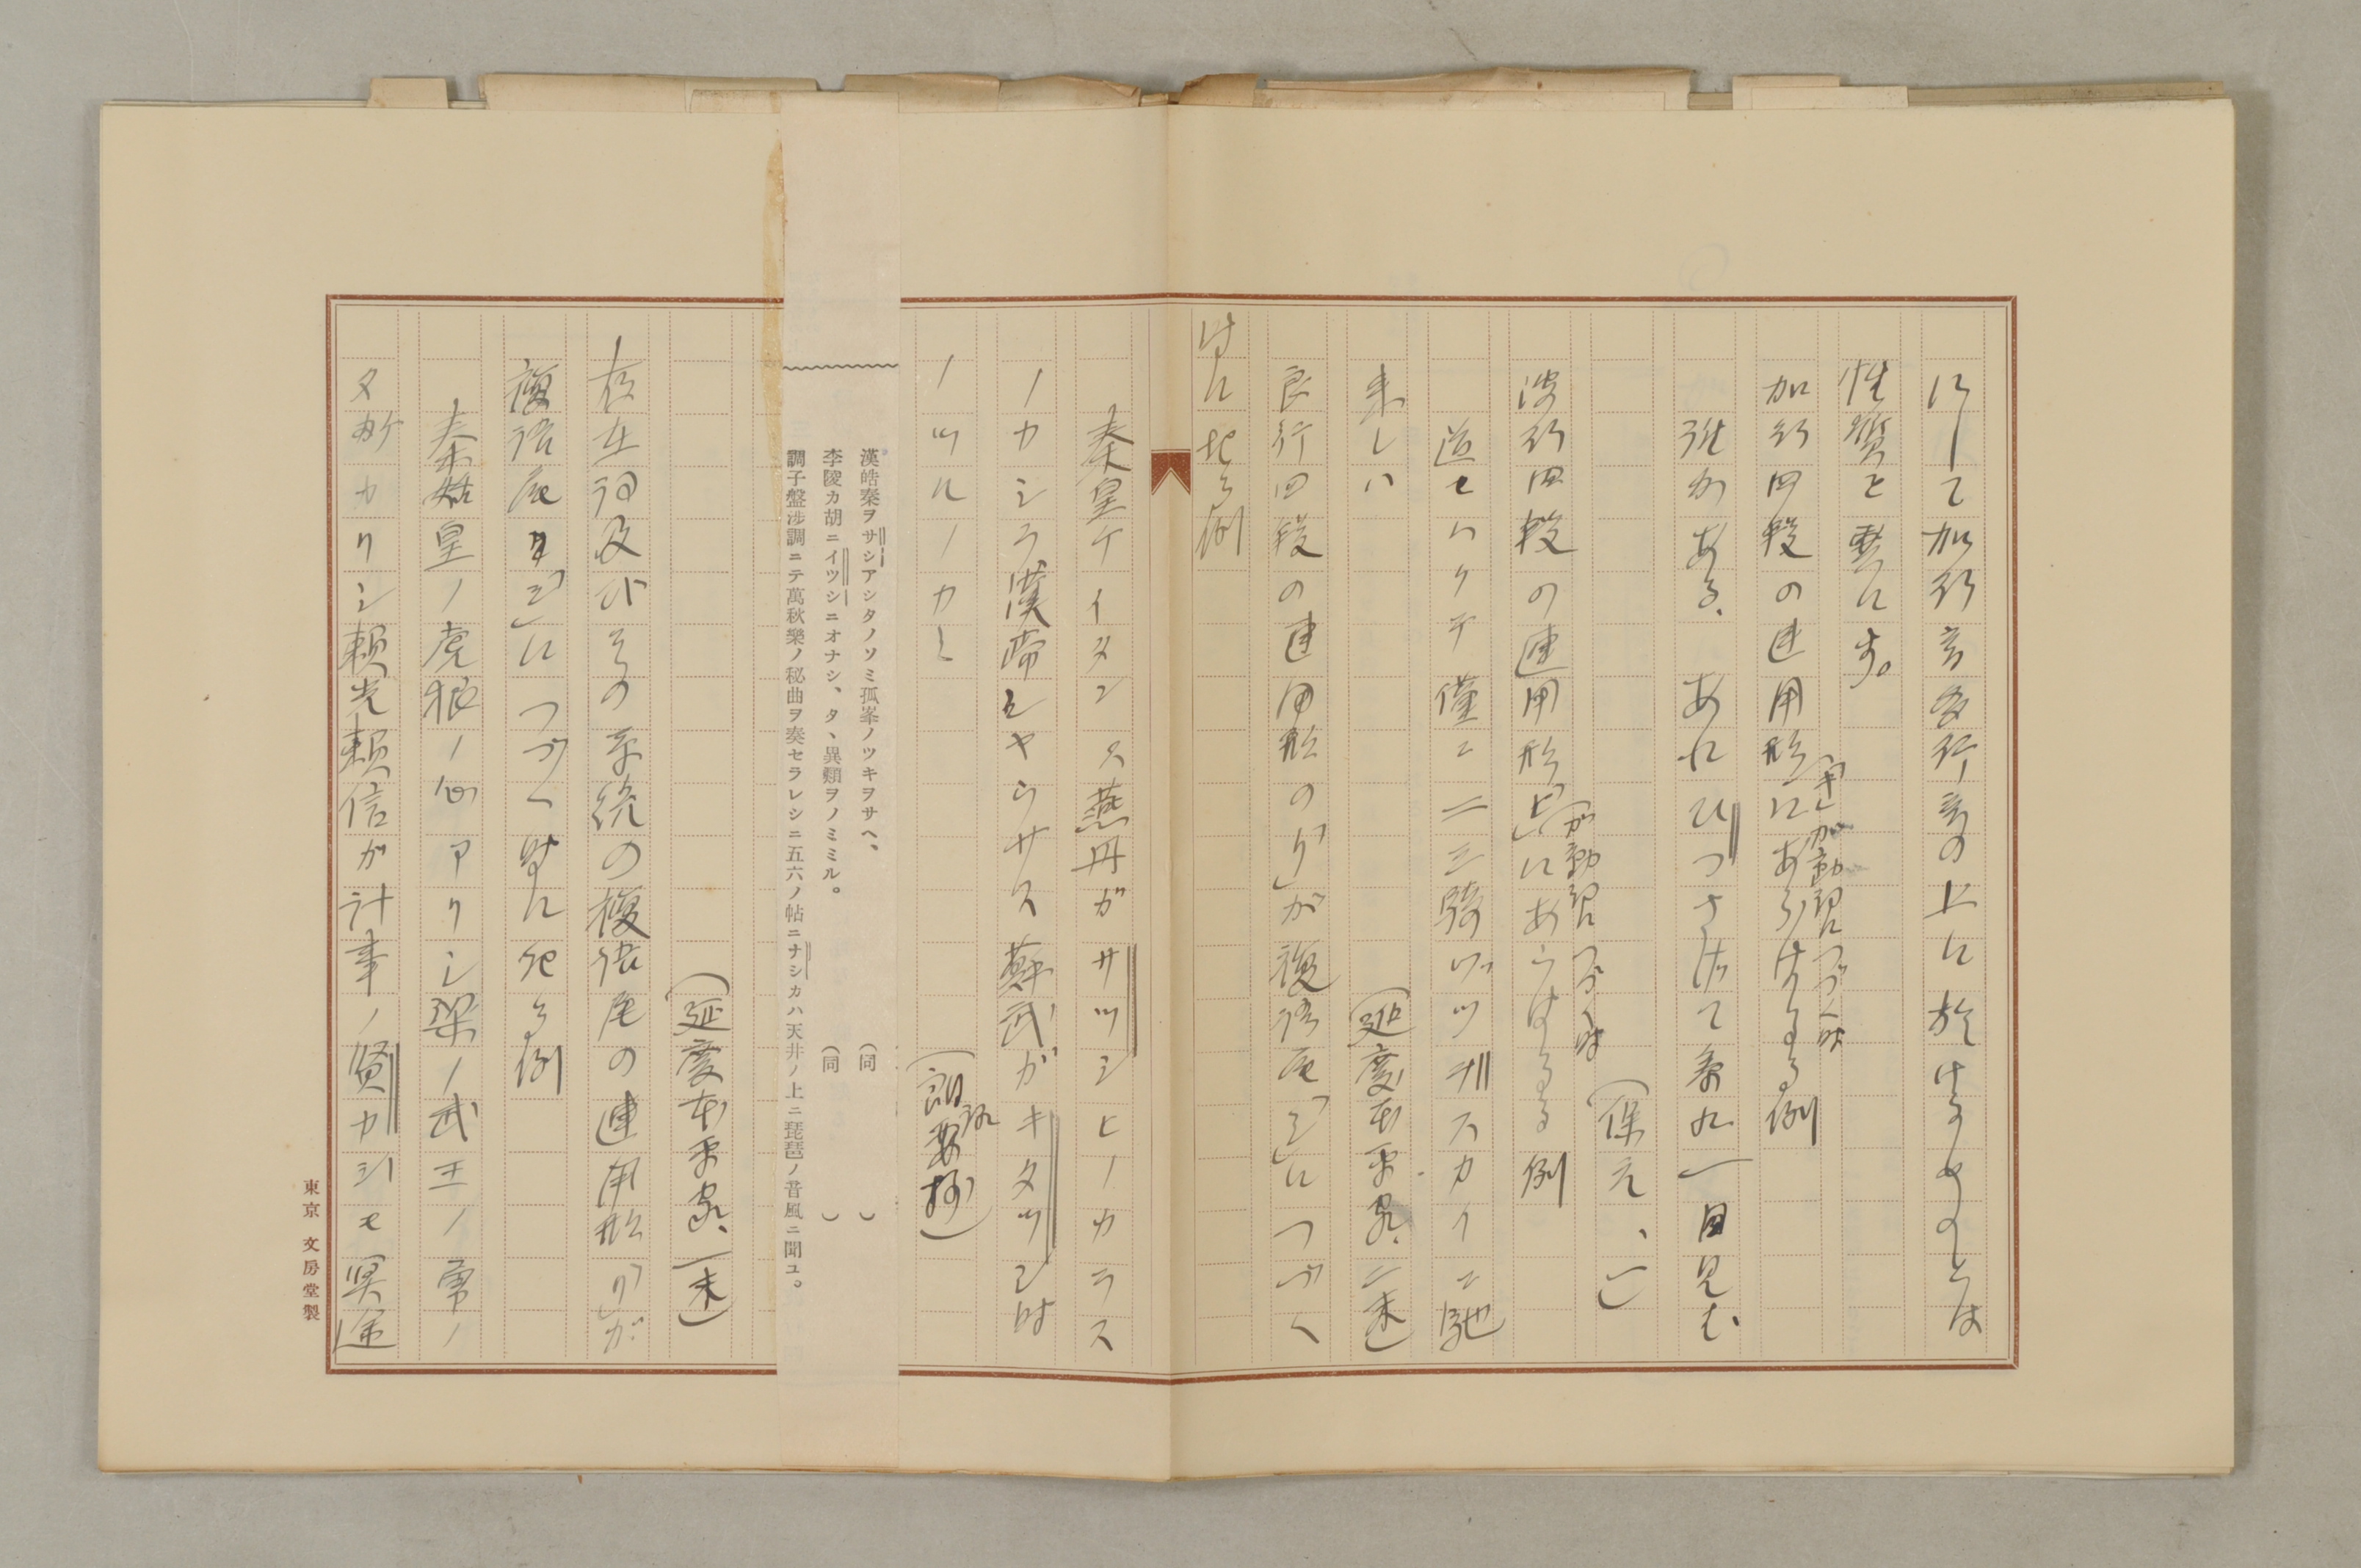 にして加行音多行音の上に於けるものとは
性質を異にす。
加行四段の連用形にあらはるる例
「キ」が動詞につづく時
強かある、あれひつさげて参れ一目見む
（保元、一）
波行四段の連用形にあらはるる例
「ヒ」が動詞につづく時
道セハクテ僅ニ二三騎ヅツカスカイニ馳
来レハ
（延慶本平家、二末）
良行四段の連用形の「り」が複語尾「シ」につづく
時に起る例
秦皇ケイタン ス燕丹ガサツシヒノカラス
ノカシラ漢帝シヤウサス蘇武ガキタツシ時
ノツルノカミ
（朗詠要抄）
漢皓秦ヲサシアシタノソミ孤峯ノツキヲサヘ、（同　　）
李陵カ胡ニイツシニオナシ、タヽ異類ヲノミミル。（同　　）
調子盤渉調ニテ萬秋樂ノ秘曲ヲ奏セラレシニ五六ノ帖ニナシカハ天井ノ上ニ琵琶ノ昔風ニ聞ユ。
（延慶本平家、一末）
存在詞及びその系統の複語尾の連用形「り」が
複語尾「シ」につづく時に起る例
秦始皇ノ虎狼ノ心アリシ梁ノ武王ノ勇ノ
タケカリシ頼光頼信が計事ノ賢カシモ冥途
東京 文房堂製